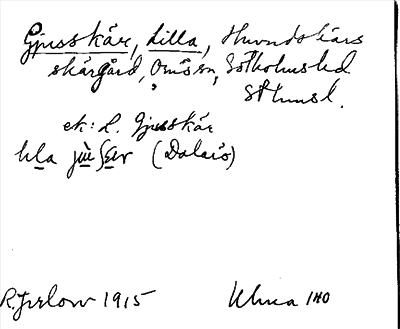 Gjusskär, Lilla, Huvudskärs
skärgård, Ornö sn, Sotholms hd.
Sthmsl.
ek: L. Gjusskär
(Dalarö)
1915
Ulma 140